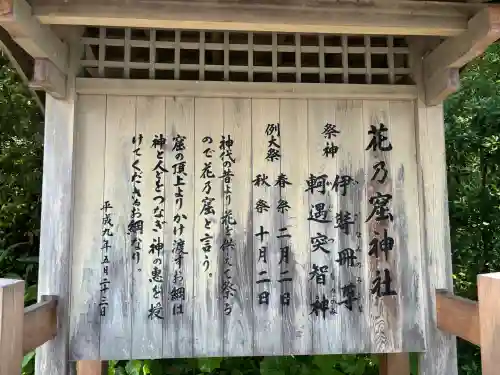 花乃窟神社
祭神 伊弉冊尊
軻遇突智神
例大祭 春祭 二月二日
秋祭 十月二日
神代の昔より花を供えて祭る
ので花乃窟と言う。
窟の頂上よりかけ渡すお綱は
神と人とをつなぎ神の恵を授
けてくださるお綱なり。
平成九年五月二十三日